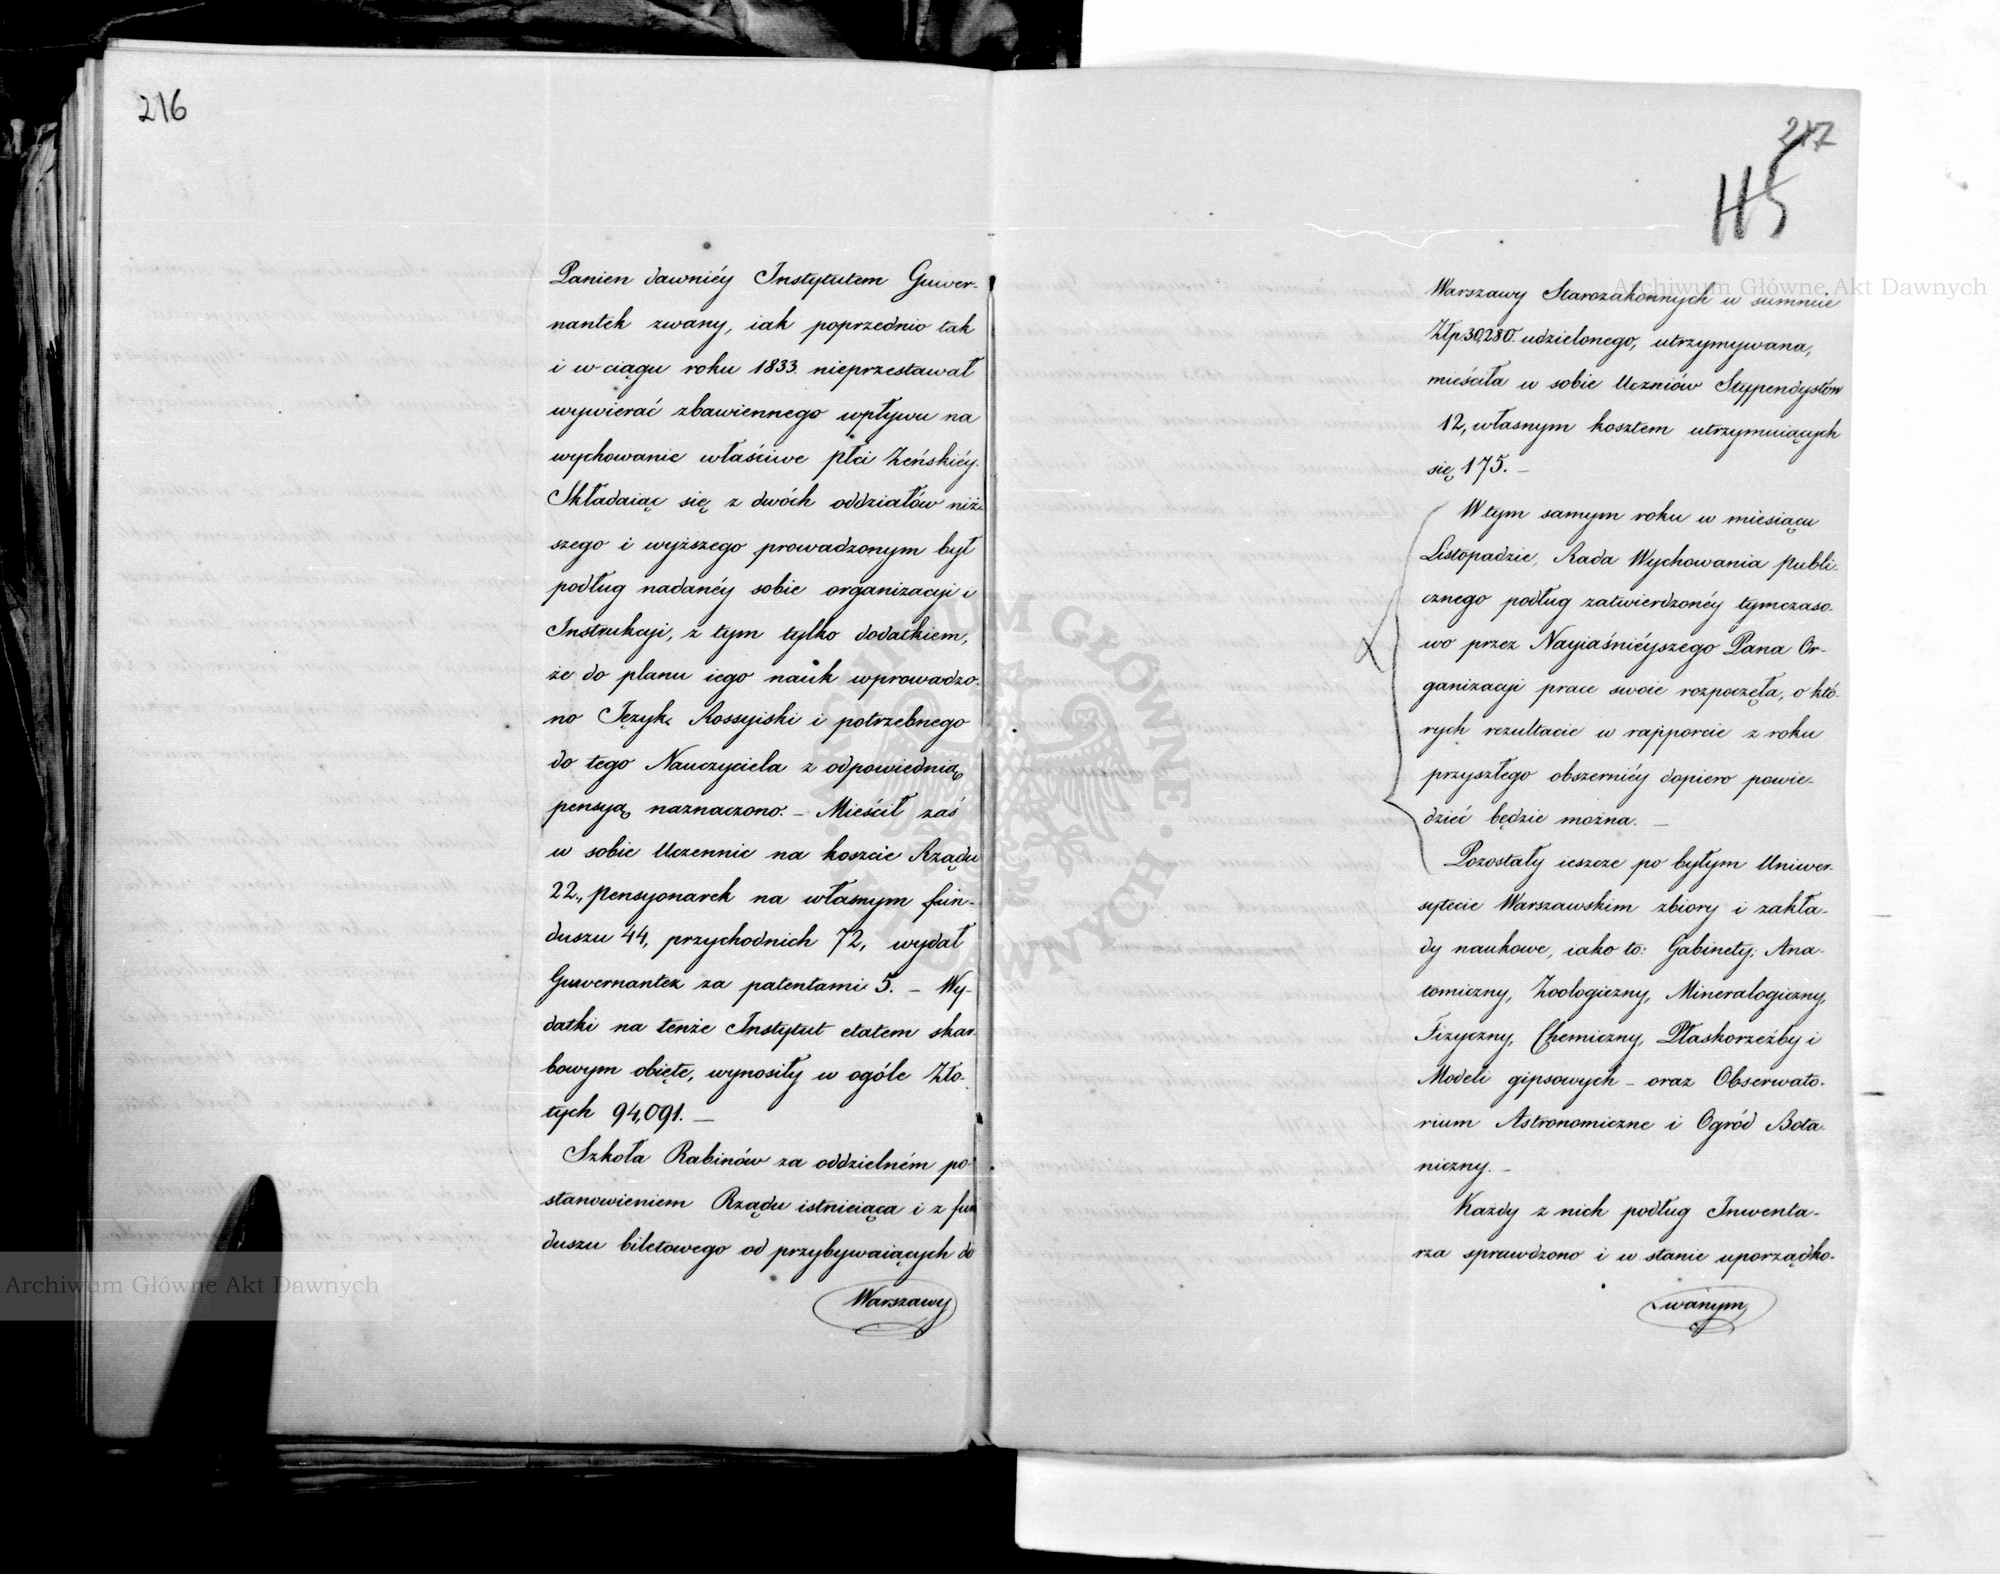 216
Panien dawniéy Instytutem Guwer-
nantek zwany, iak poprzednio tak
i w ciągu roku 1833. nieprzestawał
wywierać zbawiennego wpływu na
wychowanie właściwe płci Żeńskiéy.
Składaiąc się z dwóch oddziałów niż-
szego i wyższego prowadzonym był
podług nadanéy sobie organizacyi i
Instrukcyi, z tym tylko dodatkiem,
że do planu iego nauk wprowadzo-
no Język Rossyiski i potrzebnego
do tego Nauczyciela z odpowiednią
pensyą naznaczono. – Mieścił zaś
w sobie Uczennic na koszcie Rządu
22., pensyonarek na własnym fun-
duszu 44, przychodnich 72, wydał
Guwernantek za patentami 5. – Wy-
datki na tenże Instytut etatem skar-
bowym obięte, wynosiły w ogóle Zło-
tych 94,091. –
Szkoła Rabinów za oddzielném po-
stanowieniem Rządu istnieiąca i z fun
duszu biletowego od przybywaiących do
Warszawy
217
115
Warszawy Starozakonnych w summie
Złp. 30,280. udzielonego, utrzymywana,
mieściła w sobie Uczniów Stypendystów
12, własnym kosztem utrzymuiących
się 175. –
W tym samym roku w miesiącu
Listopadzie, Rada Wychowania Publi-
cznego podług zatwierdzonéy tymczaso-
wo przez Nayiaśniéyszego Pana Or-
ganizacyi prace swoie rozpoczęła, o któ-
rych rezultacie w rapporcie z roku
przyszłego obszerniéy dopiero powie-
dzieć będzie można. –
Pozostały ieszcze po byłym Uniwer-
sytecie Warszawskim zbiory i zakła-
dy naukowe, iako to: Gabinety: Ana-
tomiczny, Zoologiczny, Mineralogiczny,
Fizyczny, Chemiczny, Płaskorzeźby i
Modeli gipsowych – oraz Obserwato-
rium Astronomiczne i Ogród Bota-
niczny. –
Każdy z nich podług Inwenta-
rza sprawdzono i w stanie uporządko-
wanym,
Archiwum Główne Akt Dawnych
Archiwum Główne Akt Dawnych
ARCHIWUM GŁÓWNE AKT DAWNYCH